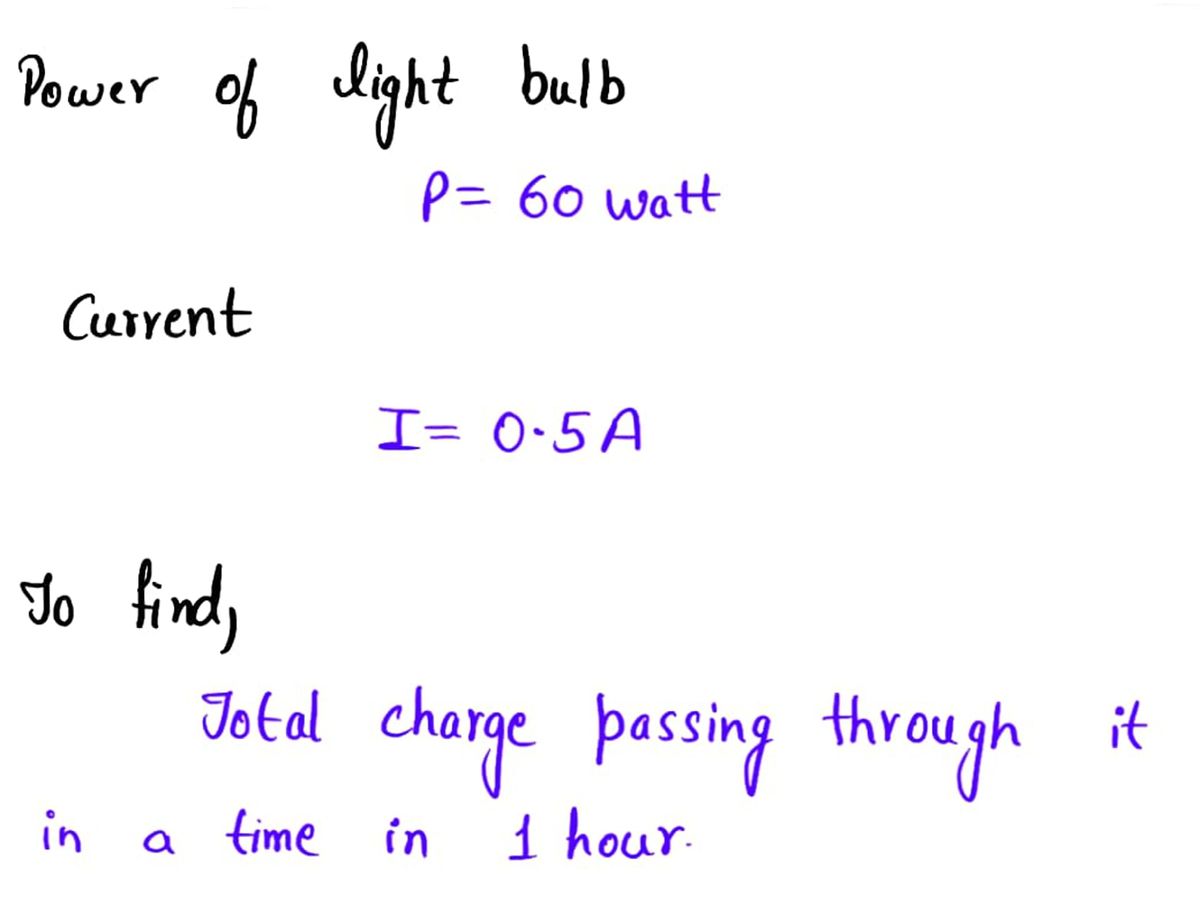 Power of light bulb
P= 60 watt
Current
I= 0.5A
To find,
Total charge passing through it
in a time in 1 hour.